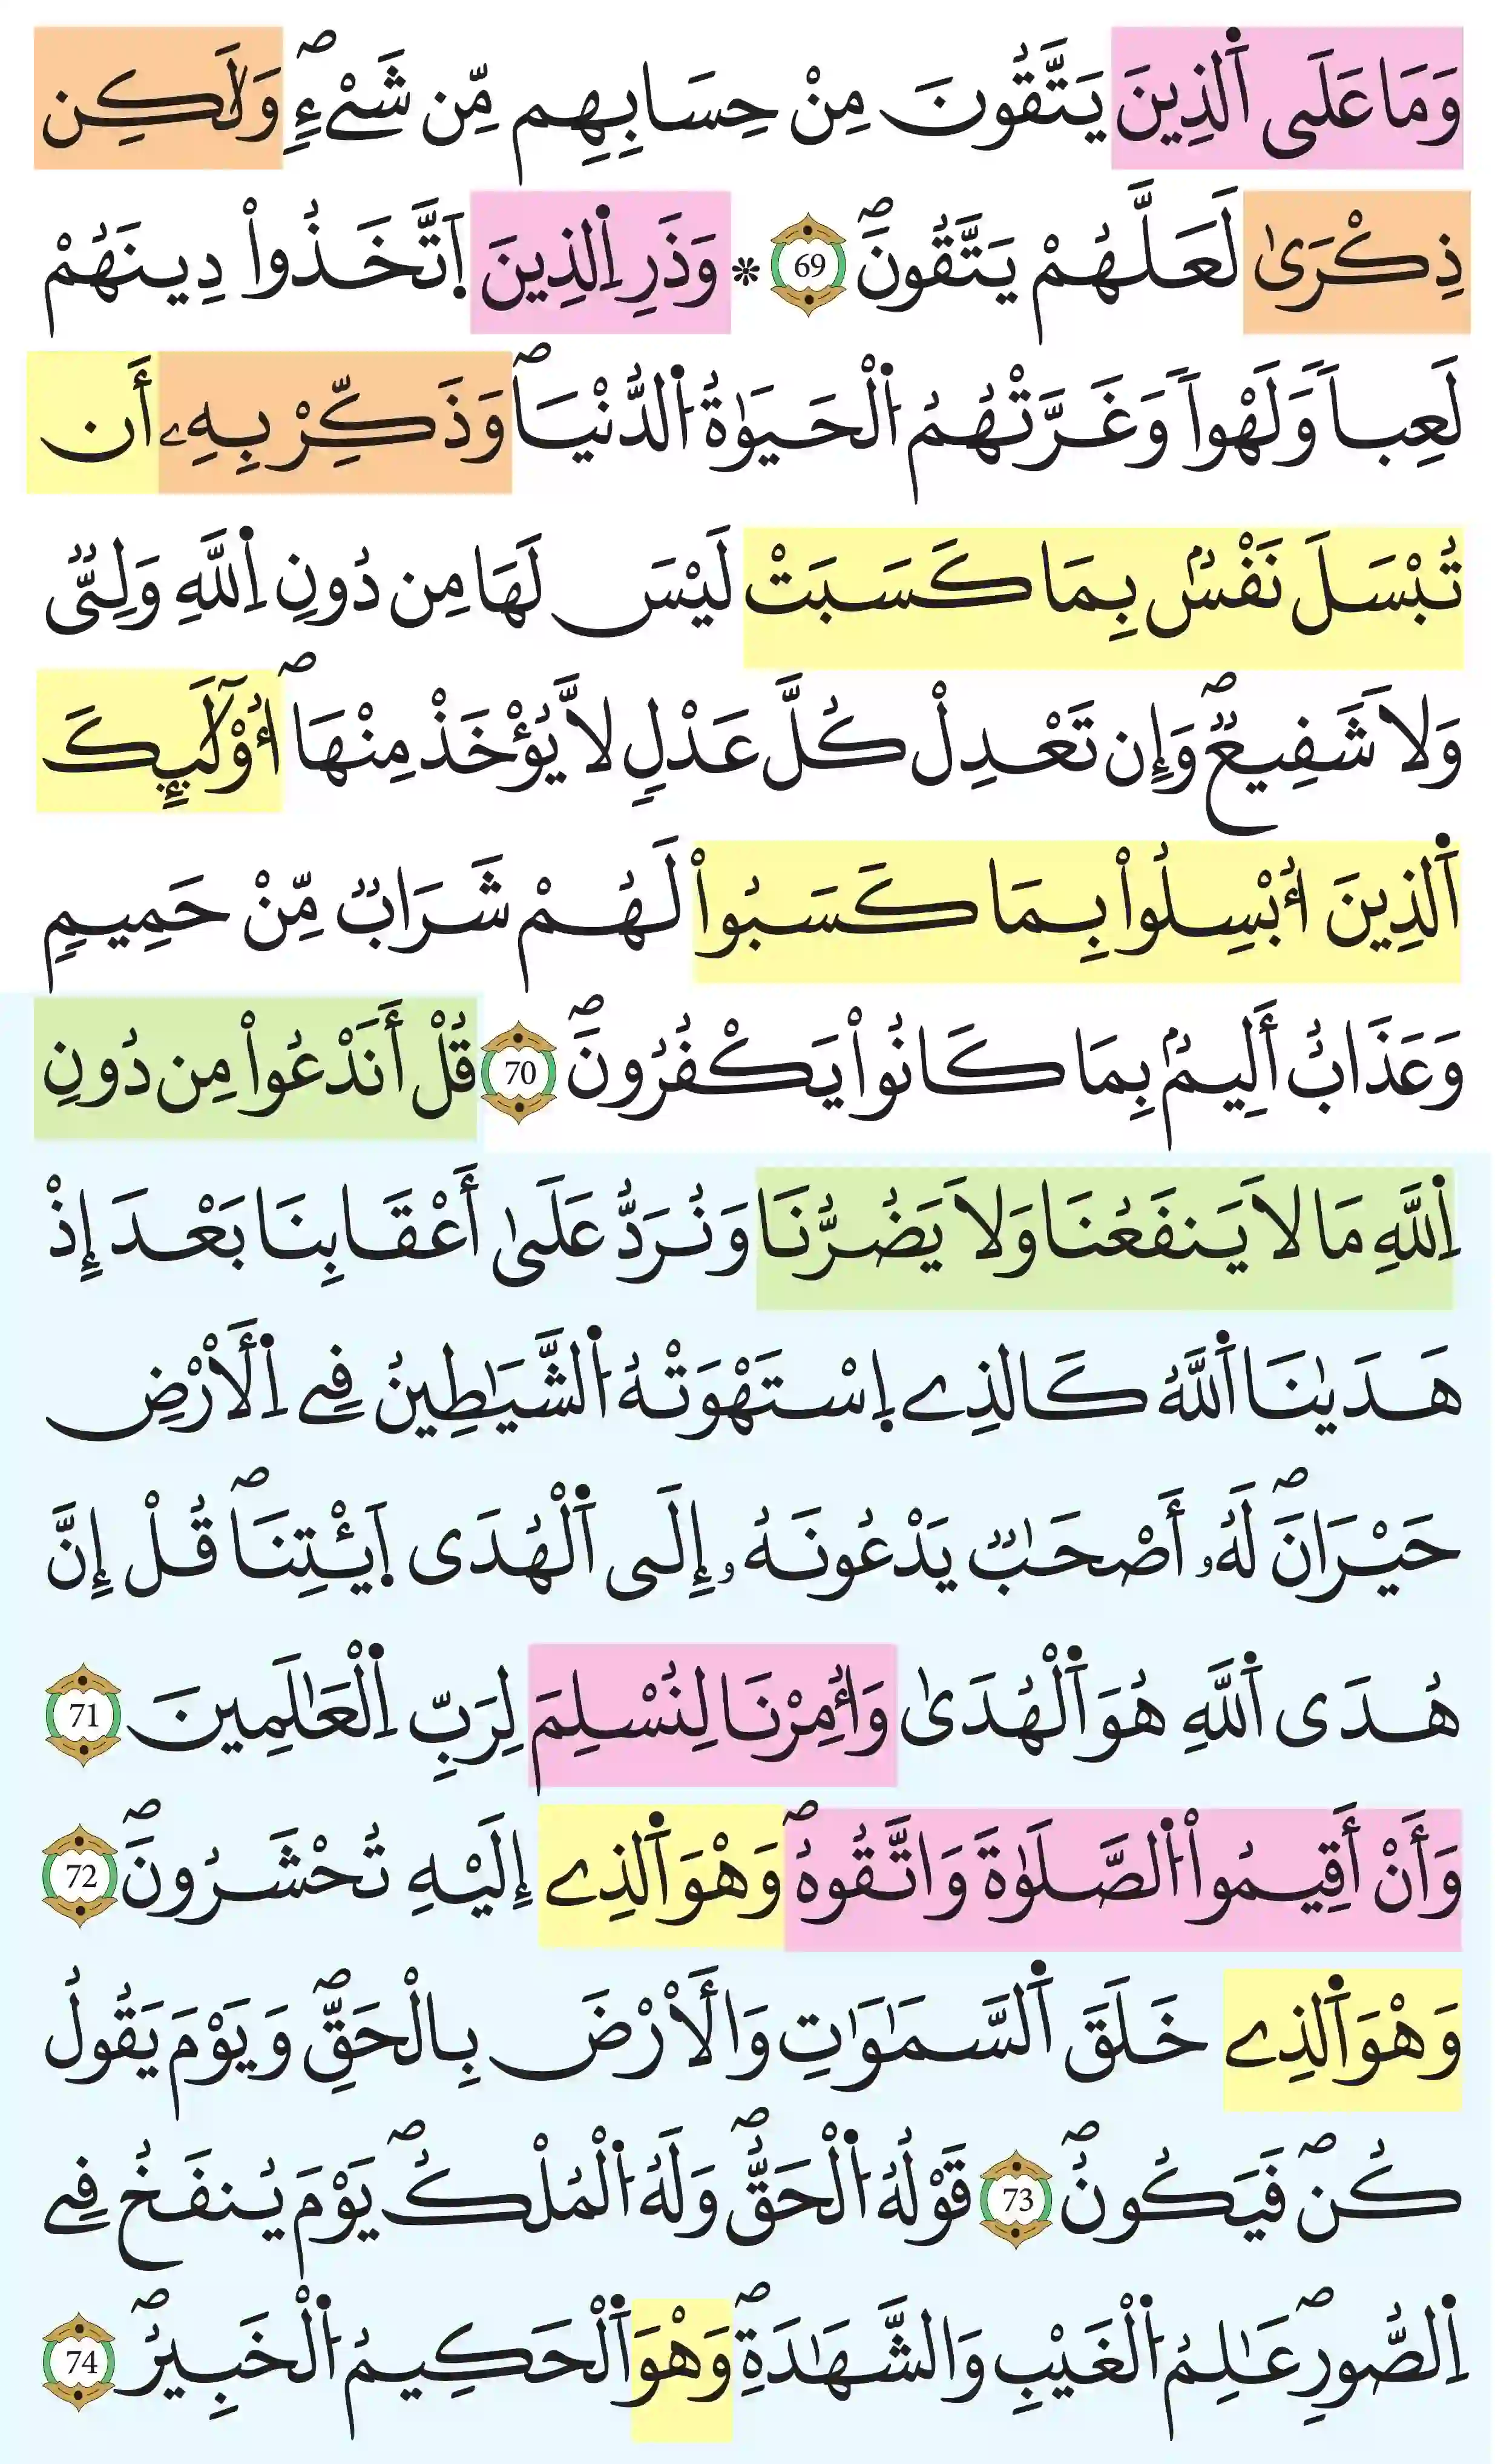 وَمَا عَلَى اَ۬لذِينَ يَتَّقُونَ مِنْ حِسَابِهِم مِّن شَےْءٖۖ وَلَٰكِن
ذِكْر۪يٰ لَعَلَّهُمْ يَتَّقُونَۖ 69 ۞ وَذَرِ اِ۬لذِينَ اَ۪تَّخَذُواْ دِينَهُمْ
لَعِباٗ وَلَهْواٗ وَغَرَّتْهُمُ اُ۬لْحَيَوٰةُ اُ۬لدُّنْي۪اۖ وَذَكِّرْ بِهِۦٓ أَن
تُبْسَلَ نَفْسُۢ بِمَا كَسَبَتْ لَيْسَ لَهَا مِن دُونِ اِ۬للَّهِ وَلِيّٞ
وَلَا شَفِيعٞۖ وَإِن تَعْدِلْ كُلَّ عَدْلٖ لَّا يُؤْخَذْ مِنْهَاۖ أُوْلَٰٓئِكَ
اَ۬لذِينَ أُبْسِلُواْ بِمَا كَسَبُواْ لَهُمْ شَرَابٞ مِّنْ حَمِيمٖ
وَعَذَابٌ أَلِيمُۢ بِمَا كَانُواْ يَكْفُرُونَۖ 70 قُلْ أَنَدْعُواْ مِن دُونِ
اِ۬للَّهِ مَا لَا يَنفَعُنَا وَلَا يَضُرُّنَا وَنُرَدُّ عَلَىٰٓ أَعْقَابِنَا بَعْدَ إِذْ
هَد۪يٰنَا اَ۬للَّهُ كَالذِے اِ۪سْتَهْوَتْهُ اُ۬لشَّيَٰطِينُ فِے اِ۬لَارْضِ
حَيْرَانَۖ لَهُۥٓ أَصْحَٰبٞ يَدْعُونَهُۥٓ إِلَى اَ۬لْهُدَى اَ۪ئْتِنَاۖ قُلْ إِنَّ
هُدَى اَ۬للَّهِ هُوَ اَ۬لْهُد۪يٰ وَأُمِرْنَا لِنُسْلِمَ لِرَبِّ اِ۬لْعَٰلَمِينَ 71
وَأَنْ أَقِيمُواْ اُ۬لصَّلَوٰةَ وَاتَّقُوهُۖ وَهْوَ اَ۬لذِےٓ إِلَيْهِ تُحْشَرُونَۖ 72
وَهْوَ اَ۬لذِے خَلَقَ اَ۬لسَّمَٰوَٰتِ وَالَارْضَ بِالْحَقِّۖ وَيَوْمَ يَقُولُ
كُنۖ فَيَكُونُۖ 73 قَوْلُهُ اُ۬لْحَقُّۖ وَلَهُ اُ۬لْمُلْكُۖ يَوْمَ يُنفَخُ فِے
اِ۬لصُّورِۖ عَٰلِمُ اُ۬لْغَيْبِ وَالشَّهَٰدَةِۖ وَهْوَ اَ۬لْحَكِيمُ اُ۬لْخَبِيرُۖ 74